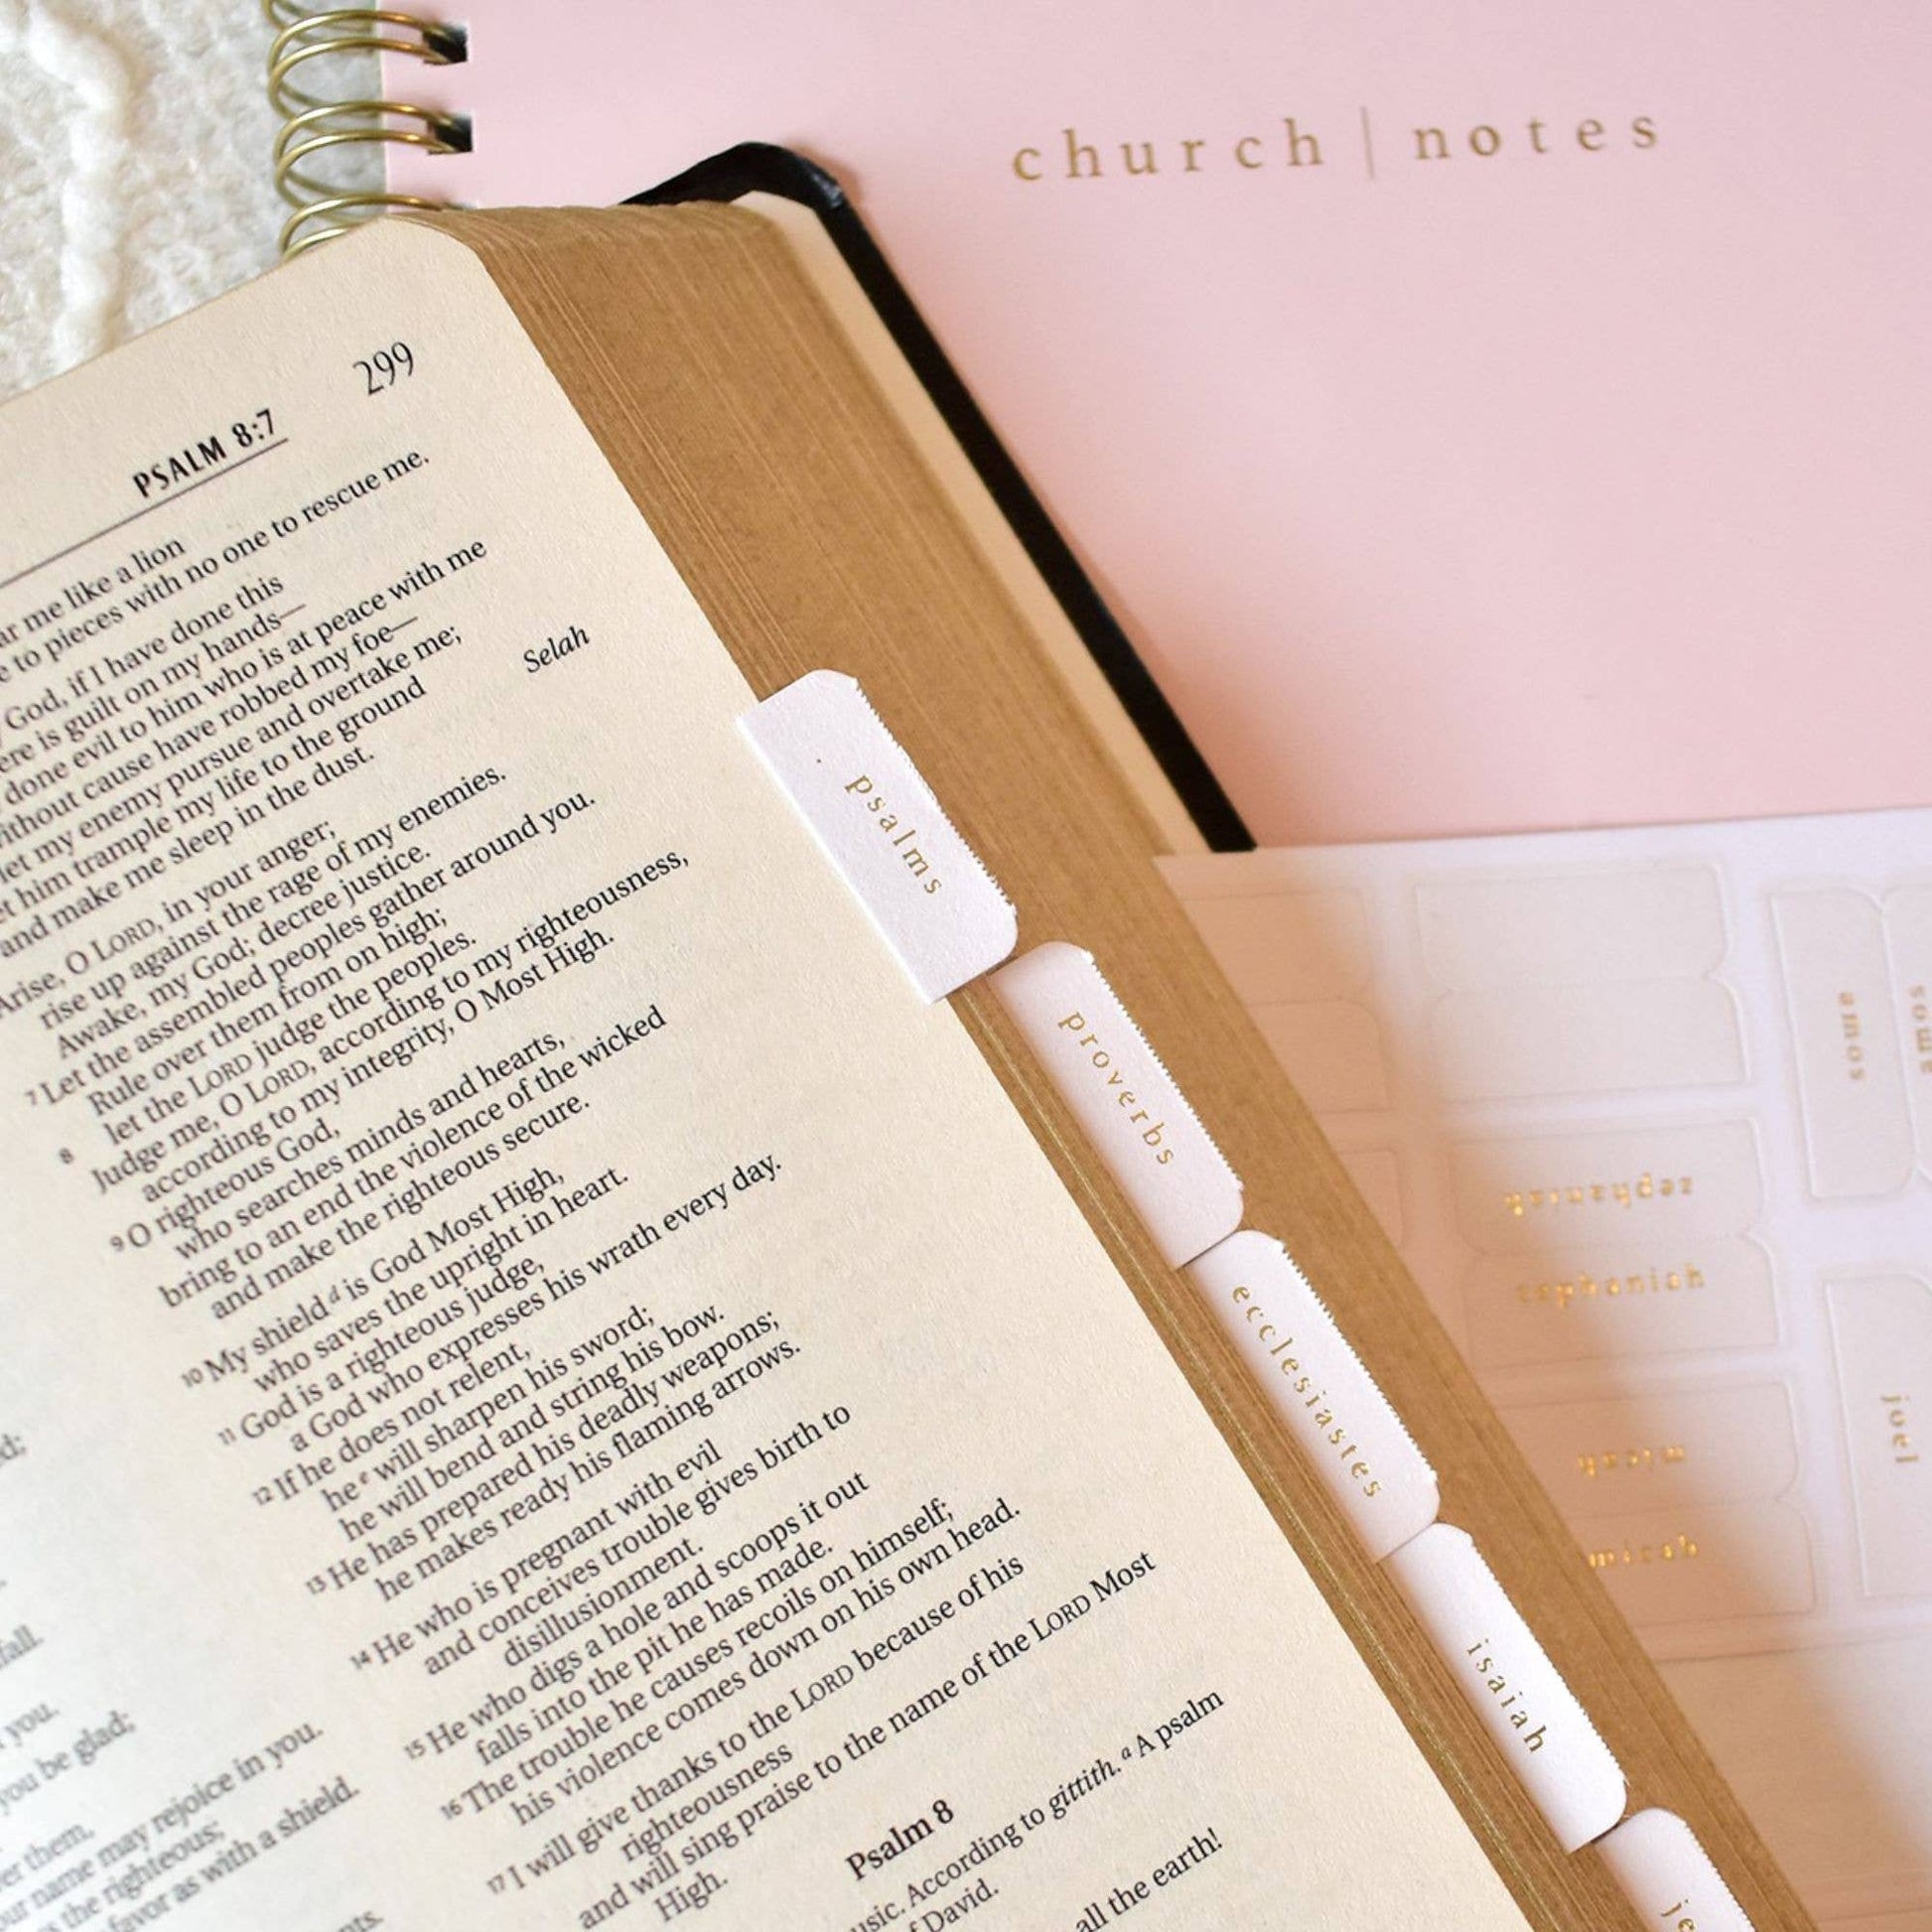 church | notes
299
PSALM 8:7
me like a lion
to pieces with no one to rescue me.
God, if I have done this
is guilt on my hands—
done evil to him who is at peace with me
without cause have robbed my foe—
let my enemy pursue and overtake me;
him trample my life to the ground
and make me sleep in the dust.
Selah
Arise, O LORD, in your anger;
rise up against the rage of my enemies.
Awake, my God; decree justice.
7 Let the assembled peoples gather around you.
Rule over them from on high;
8 let the LORD judge the peoples.
Judge me, O LORD, according to my righteousness,
according to my integrity, O Most High.
9 O righteous God,
who searches minds and hearts,
bring to an end the violence of the wicked
and make the righteous secure.
10 My shield d is God Most High,
who saves the upright in heart.
11 God is a righteous judge,
a God who expresses his wrath every day.
12 If he does not relent,
he e will sharpen his sword;
he will bend and string his bow.
13 He has prepared his deadly weapons;
he makes ready his flaming arrows.
14 He who is pregnant with evil
and conceives trouble gives birth to
disillusionment.
15 He who digs a hole and scoops it out
falls into the pit he has made.
16 The trouble he causes recoils on himself;
his violence comes down on his own head.
17 I will give thanks to the LORD because of his
righteousness
and will sing praise to the name of the LORD Most
High.
Psalm 8
According to gittith. a A psalm
David.
all the earth!
you.
you be glad;
them.
name may rejoice in you.
the righteous;
favor as with a shield.
psalms
proverbs
ecclesiastes
isaiah
je
amos
amos
zephaniah
zephaniah
joel
micah
micah